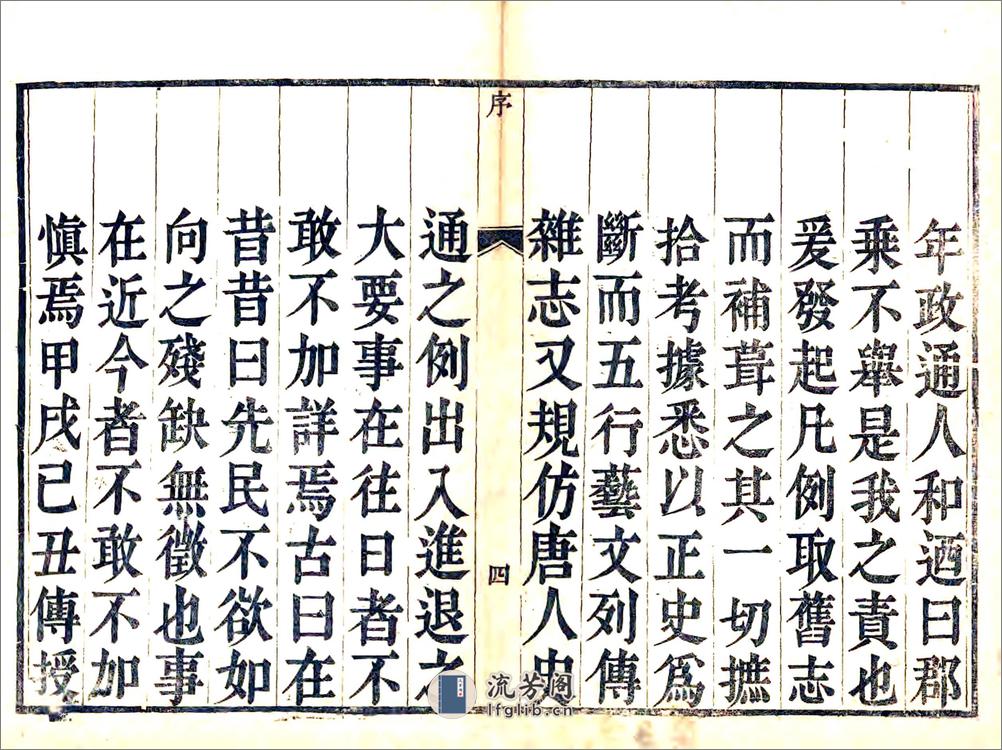 年政通人和迺曰郡
乘不舉是我之責也
爰發起凡例取舊志
而補葺之其一切摭
拾考據悉以正史爲
斷而五行藝文列傳
雜志又規仿唐人史
序
四
通之例出入進退之
大要事在往日者不
敢不加詳焉古曰在
昔昔曰先民不欲如
向之殘缺無徵也事
在近今者不敢不加
慎焉甲戌己丑傳授
流芳閣
lfglib.cn